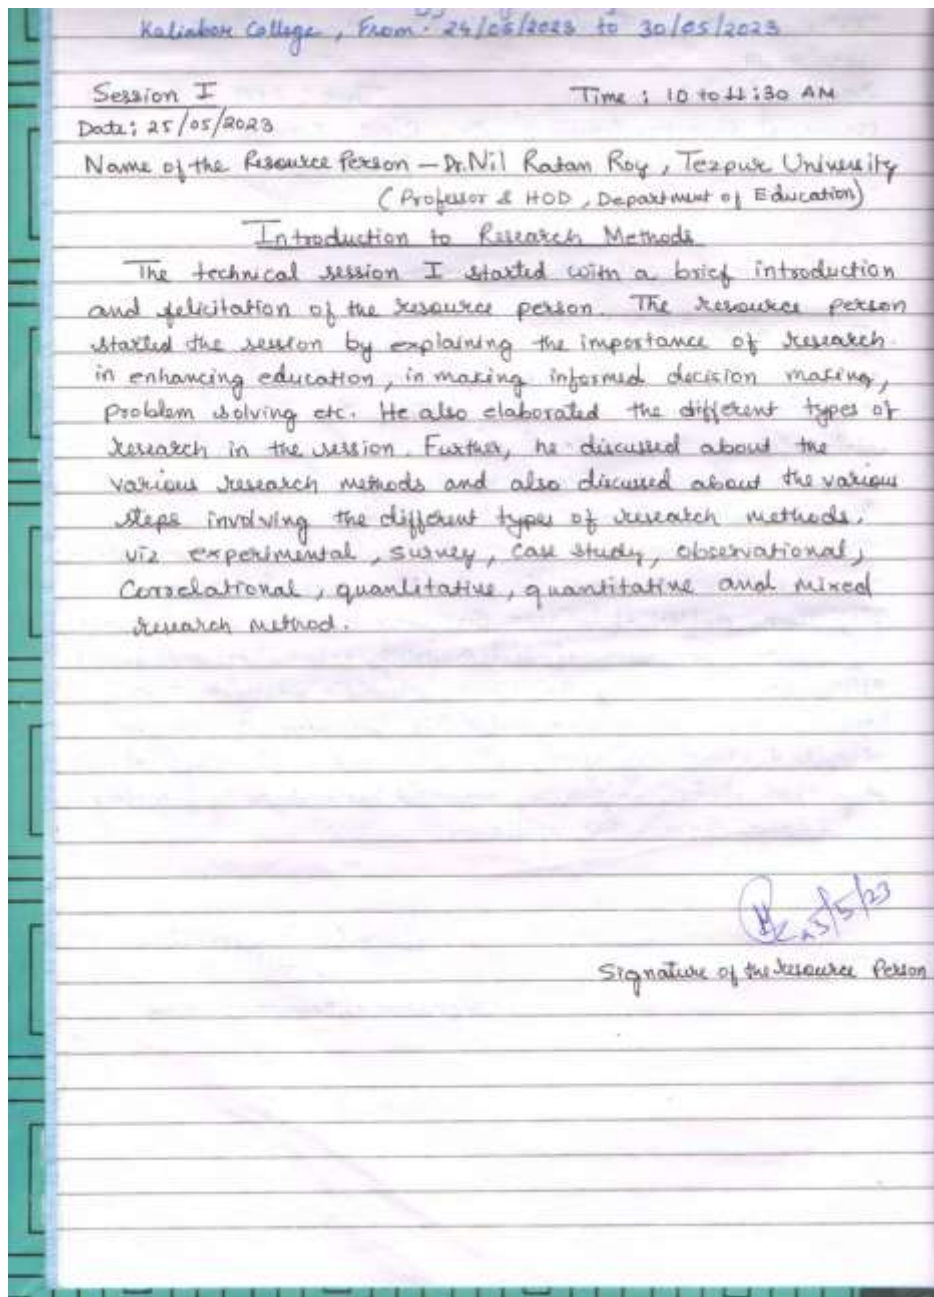 Kaliabor College, From - 24/05/2023 to 30/05/2023
Session I Time : 10 to 11:30 AM
Date: 25/05/2023
Name of the Resource Person – Dr. Nil Ratan Roy, Tezpur University
(Professor & HOD, Department of Education)
Introduction to Research Methods
The technical session I started with a brief introduction
and felicitation of the resource person. The resource person
started the session by explaining the importance of research
in enhancing education, in making informed decision making,
problem solving etc. He also elaborated the different types of
research in the session. Further, he discussed about the
various research methods and also discussed about the various
steps involving the different types of research methods,
viz experimental, survey, case study, observational,
Correlational, quantitative, quantitative and mixed
research method.
25/5/23
Signature of the resource Person